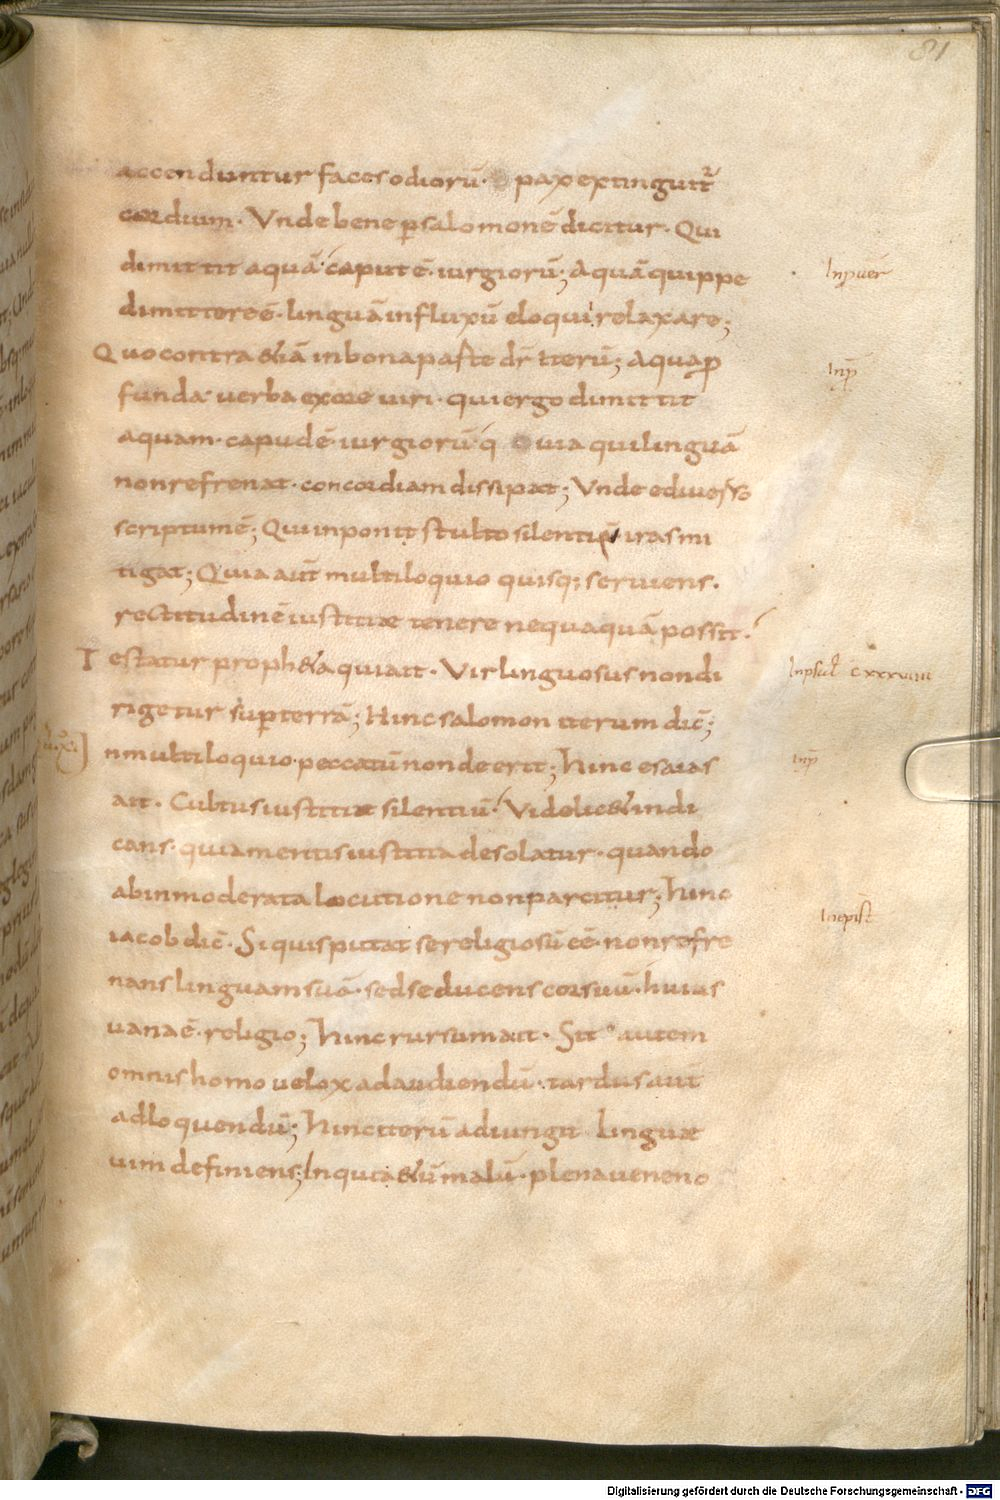 81
accenduntur faces odiorū· pax extinguit᷑
cordium· Vnde bene ꝑ salomonē dicitur· Qui
dimittit aquā· caput ē· iurgiorū; Aquā quippe
dimittere ē· linguā in fluxū eloquii relaxare;
Quo contra &iā in bona parte dr̄ iterū; Aqua ꝓ
funda· uerba ex ore uiri· qui ergo dimittit
aquam· capud ē· iurgiorū· q uia qui linguā
non refrenat· concordiam dissipat; Vnde e diuerso
scriptum ē; Qui inponit stulto silentiū iras mi
tigat; Quia aut̄ multiloquio quisq; seruiens·
rectitudinē iustitiae tenere nequaquā possit·
Testatur proph&a quia ait· Vir linguosus non di
rigetur suꝑ terrā; Hinc salomon iterum dic̄;
In multiloquio· peccatū non deerit; hinc esaias
ait· Cultus iustitiae silentiū· Videlic& indi
cans· quia mentis iustitia desolatur· quando
ab inmoderata locutione non parcitur; hinc
iacob dic̄· Si quis putat se religiosū eē· non refre
nans linguam suā· sed seducens cor suū· huius
uana ē· religio; hinc rursum ait· Sit autem
omnis homo uelox ad audiendū· tardus aut̄
ad loquendū; hinc iterū adiungit linguae
uim definiens; Inqui&ū malū· plena ueneno
In puer
In ꝓ
In psal cxxxviiii
In ꝓ
In epist
Digitalisierung gefördert durch die Deutsche Forschungsgemeinschaft - DFG